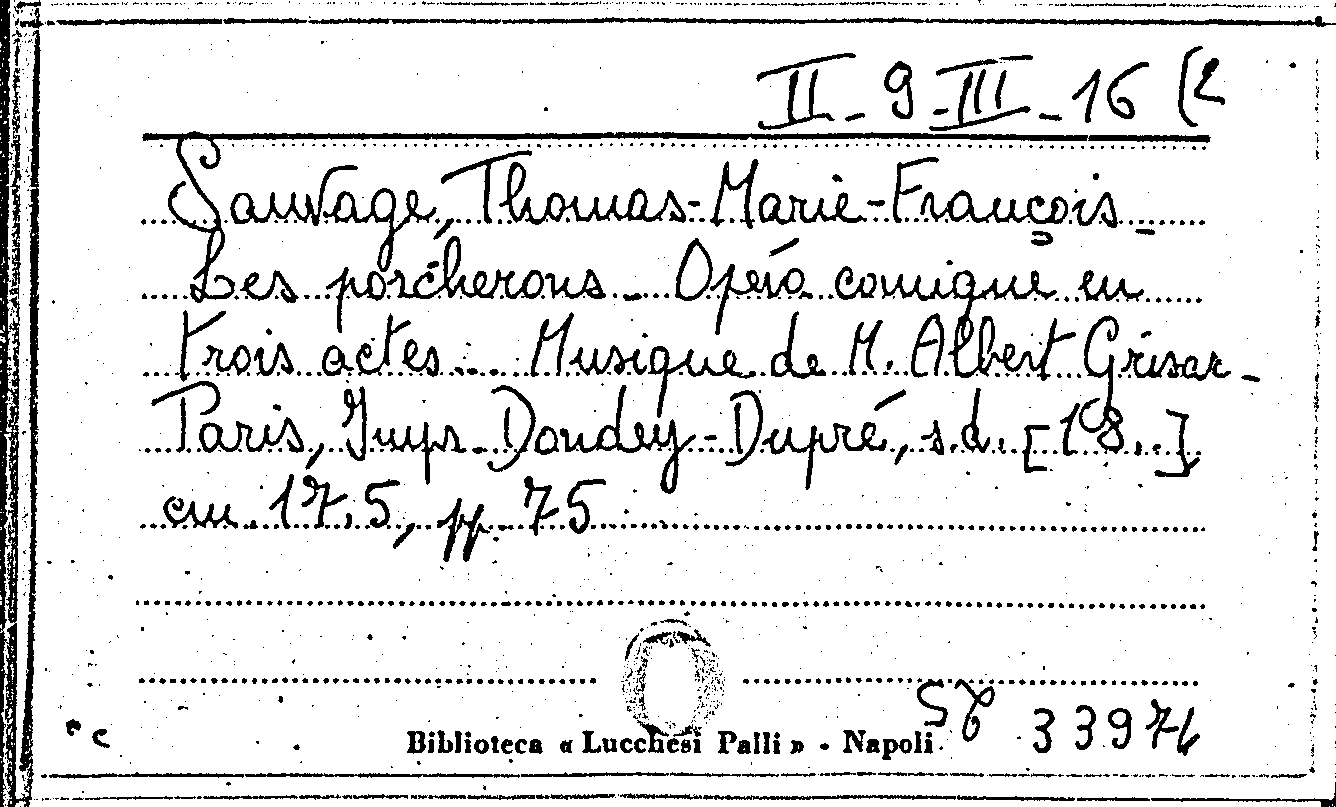 II - 9 - III - 16 (2
Sauvage, Thomas-Marie-François -
Les porcherons - Opéra comique en
trois actes... Musique de M. Albert Grisar -
Paris, Imp. Dondey-Dupré, s.d. [18..]
cm. 17,5, pp. 75
33974
Biblioteca « Lucchesi Palli » - Napoli